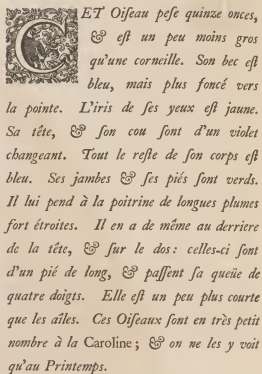 CET Oiſeau peſe quinze onces,
& eſt un peu moins gros
qu'une corneille. Son bec eſt
bleu, mais plus foncé vers
la pointe. L'iris de ſes yeux eſt jaune.
Sa tête, & ſon cou ſont d'un violet
changeant. Tout le reſte de ſon corps eſt
bleu. Ses jambes & ſes piés ſont verds.
Il lui pend à la poitrine de longues plumes
fort étroites. Il en a de même au derriere
de la tête, & ſur le dos: celles-ci ſont
d'un pié de long, & paſſent ſa queüe de
quatre doigts. Elle eſt un peu plus courte
que les aîles. Ces Oiſeaux ſont en très petit
nombre à la Caroline; & on ne les y voit
qu'au Printemps.